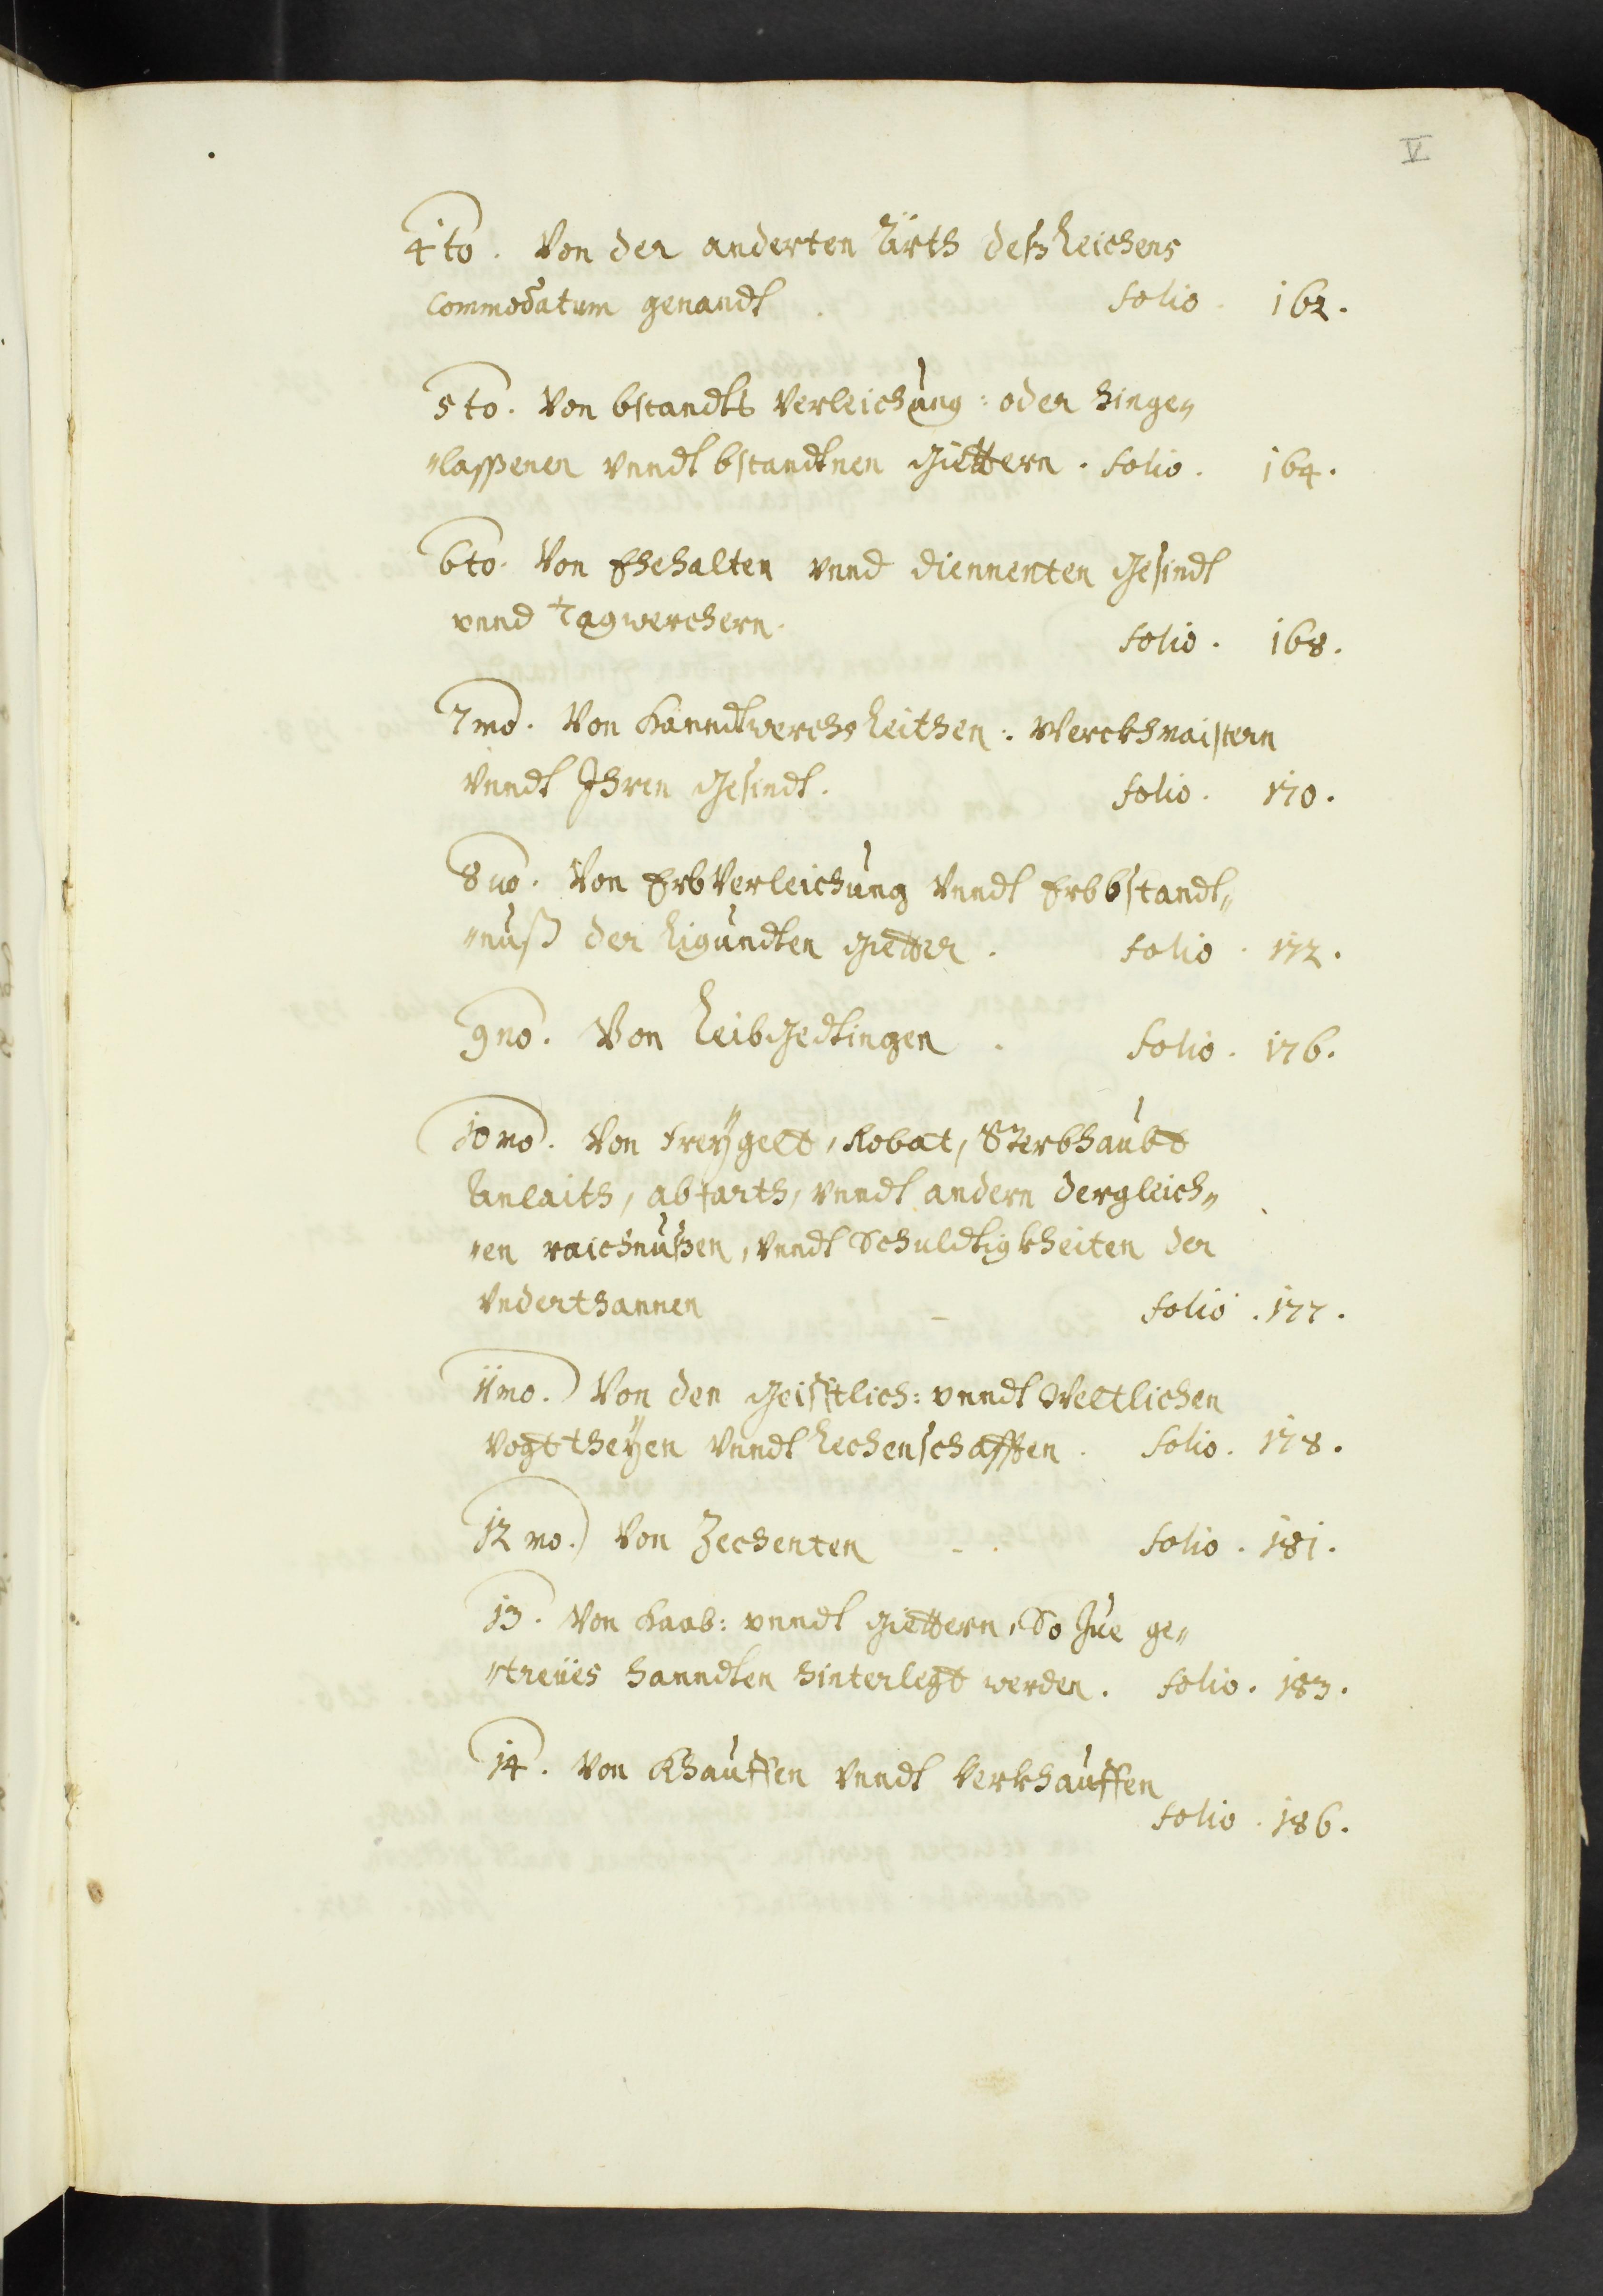 V
4to. Von der anderten Ärth deß Leichens
Commodatum genandt. folio. 162.
5to. Von bstandts Verleichung: oder hinge„
„lassenen vnndt bstandtnen Giettern. folio. 164.
6to. Von Ehehalten vnnd diennenten Gesindt
vnnd Tagwerchern. folio. 168.
7mo. Von Hanndtwerchs Leithen: Werckhmaistern
vnndt Ihren Gesindt. folio. 170.
8uo. Von Erb Verleichung Vnndt Erb bstandt„
„nuß der Ligundten Gietter. folio. 172.
9no. Von Leib Gedtingen. folio. 176.
10mo. Von freygelt, Robat, Sterbhaubt
Anlaith, abfarth, vnndt andern dergleich„
„en raichnußen, vnndt Schuldtigkheiten der
Vnderthannen folio. 177.
11mo. Von den Geistlich: vnndt Weltlichen
Vogttheÿen Vnndt Lechenschafften. folio. 178.
12mo. Von Zechenten folio. 181.
13. Von Haab: vnndt Giettern, So Zue ge„
„treües hanndten hinterlegt werden. folio. 183.
14. Von Khauffen Vnndt Verkhauffen
folio. 186.